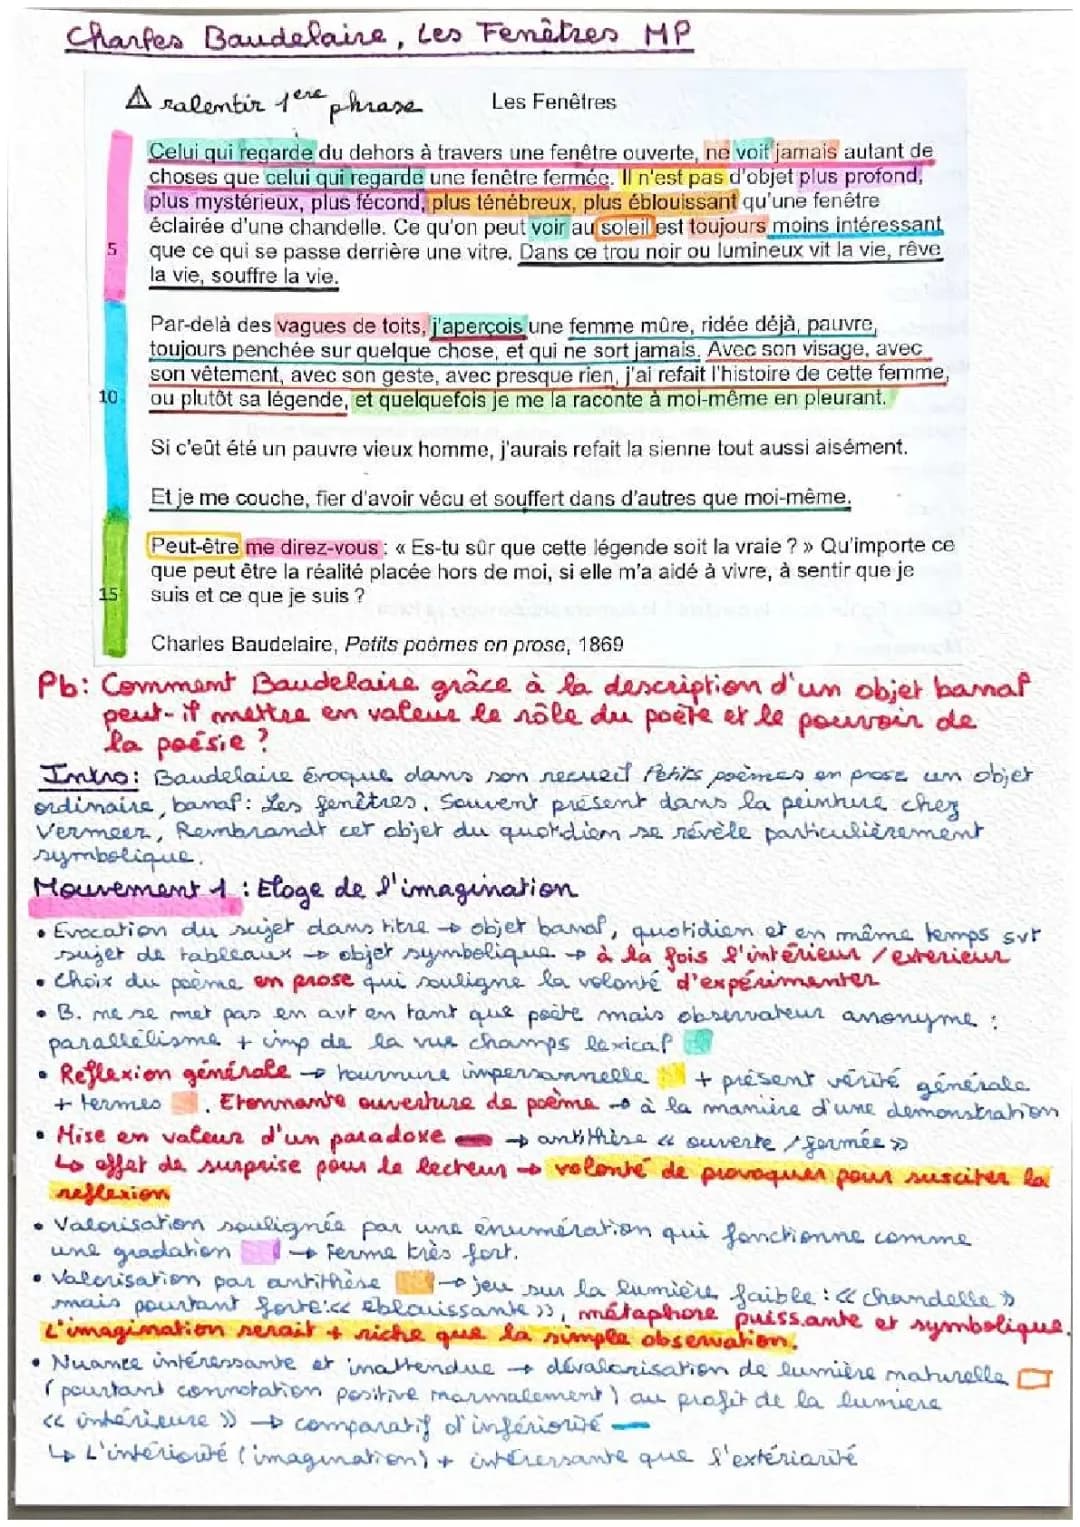 Charles Baudelaire, Les Fenêtres MP
⚠ ralentir 1ere phrase
Les Fenêtres
Celui qui regarde du dehors à travers une fenêtre ouverte, ne voit jamais autant de
choses que celui qui regarde une fenêtre fermée. Il n'est pas d'objet plus profond,
plus mystérieux, plus fécond, plus ténébreux, plus éblouissant qu'une fenêtre
éclairée d'une chandelle. Ce qu'on peut voir au soleil est toujours moins intéressant
5 que ce qui se passe derrière une vitre. Dans ce trou noir ou lumineux vit la vie, rêve
la vie, souffre la vie.
Par-delà des vagues de toits, j'aperçois une femme mûre, ridée déjà, pauvre,
toujours penchée sur quelque chose, et qui ne sort jamais. Avec son visage, avec
son vêtement, avec son geste, avec presque rien, j'ai refait l'histoire de cette femme,
10 ou plutôt sa légende, et quelquefois je me la raconte à moi-même en pleurant.
Si c'eût été un pauvre vieux homme, j'aurais refait la sienne tout aussi aisément.
Et je me couche, fier d'avoir vécu et souffert dans d'autres que moi-même.
Peut-être me direz-vous : « Es-tu sûr que cette légende soit la vraie ? » Qu'importe ce
que peut être la réalité placée hors de moi, si elle m'a aidé à vivre, à sentir que je
15 suis et ce que je suis ?
Charles Baudelaire, Petits poèmes en prose, 1869
Pb: Comment Baudelaire grâce à la description d'un objet banal
peut-il mettre en valeur le rôle du poète et le pouvoir de
la poésie ?
Intro: Baudelaire évoque dans son recueil Petits poèmes en prose un objet
ordinaire, banal: Les fenêtres. Souvent présent dans la peinture chez
Vermeer, Rembrandt cet objet du quotidien se révèle particulièrement
symbolique.
Mouvement 1 : Eloge de l'imagination
• Evocation du sujet dans titre → objet banal, quotidien et en même temps svt
sujet de tableaux → objet symbolique → à la fois l'intérieur / exterieur
• Choix du poème en prose qui souligne la volonté d'expérimenter
• B. ne se met pas en avt en tant que poète mais observateur anonyme :
parallélisme + imp de la vue champs lexical
• Reflexion générale → tournure impersonnelle + présent vérité générale
+ termes . Etonnante ouverture de poème → à la manière d'une démonstration
• Mise en valeur d'un paradoxe → antithèse « ouverte / fermée »
↳ effet de surprise pour le lecteur → volonté de provoquer pour susciter la
reflexion
• Valorisation soulignée par une énumération qui fonctionne comme
une gradation → Terme très fort.
• Valorisation par antithèse → jeu sur la lumière faible : « chandelle »
mais pourtant forte: « éblouissante », métaphore puissante et symbolique.
L'imagination serait + riche que la simple observation.
• Nuance intéressante et inattendue → dévalorisation de lumière naturelle
(pourtant connotation positive normalement) au profit de la lumière
« intérieure » → comparatif d'infériorité
↳ L'intériorité (imagination) + intéressante que l'extériorité